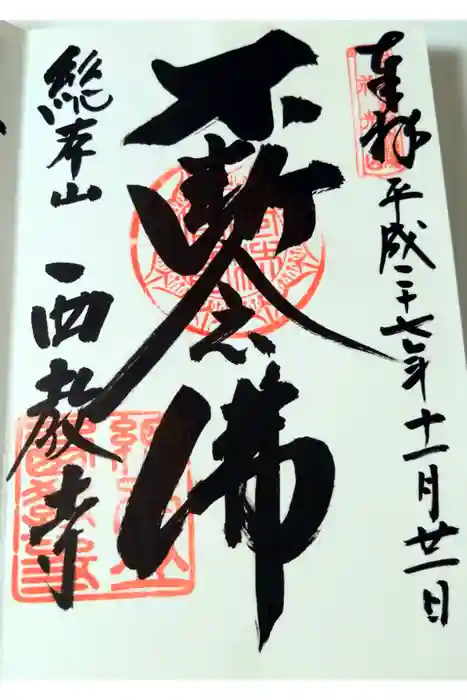 奉拝 平成二十七年十一月廿一日
不断念佛
総本山 西教寺